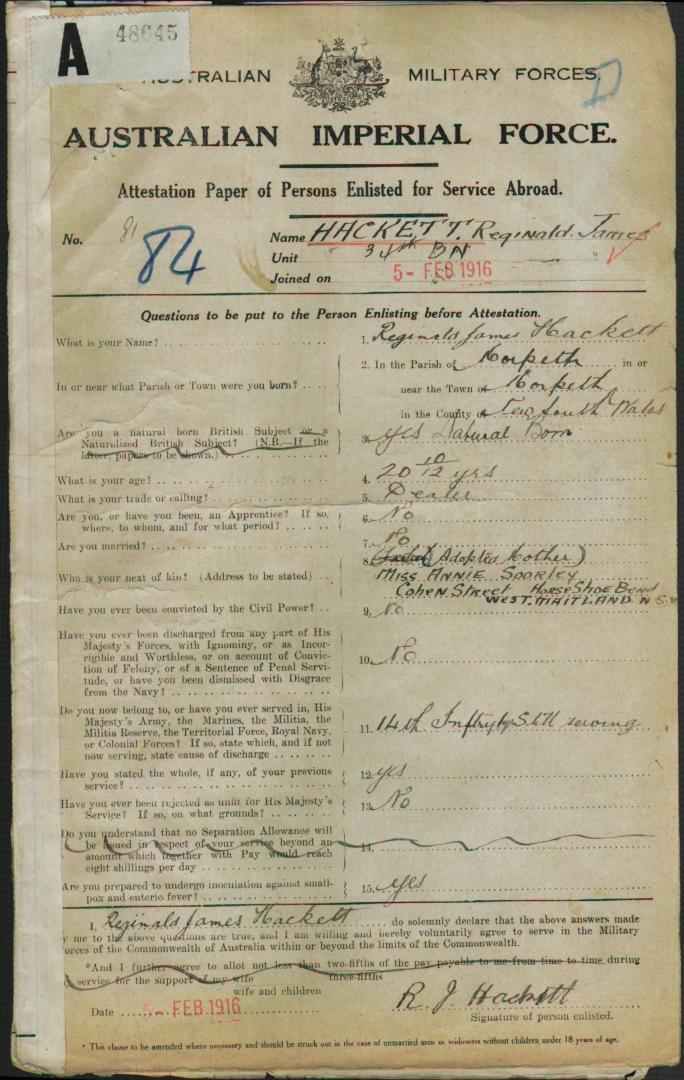 A 48645
AUSTRALIAN MILITARY FORCES.
AUSTRALIAN IMPERIAL FORCE.
Attestation Paper of Persons Enlisted for Service Abroad.
No. 81 84 Name HACKETT. Reginald. James
Unit 34th BN
Joined on 5- FEB 1916
Questions to be put to the Person Enlisting before Attestation.
What is your Name? 1. Reginald James Hackett
In or near what Parish or Town were you born? 2. In the Parish of Morpeth in or
near the Town of Morpeth
in the County of New South Wales
Are you a natural born British Subject or a
Naturalized British Subject? (N.B.—If the
latter, papers to be shown.) 3. yes Natural Born
What is your age? 4. 20 10/12 yrs
What is your trade or calling? 5. Dealer
Are you, or have you been, an Apprentice? If so,
where, to whom, and for what period? 6. No
Are you married? 7. No
Who is your next of kin? (Address to be stated) 8. (Adopted Mother)
Miss ANNIE SOORLEY
Cohen Street HORSE SHOE BEND
WEST. MAITLAND N S W
Have you ever been convicted by the Civil Power? 9. No
Have you ever been discharged from any part of His
Majesty's Forces, with Ignominy, or as Incor-
rigible and Worthless, or on account of Convic-
tion of Felony, or of a Sentence of Penal Servi-
tude, or have you been dismissed with Disgrace
from the Navy? 10. No
Do you now belong to, or have you ever served in, His
Majesty's Army, the Marines, the Militia, the
Militia Reserve, the Territorial Force, Royal Navy,
or Colonial Forces? If so, state which, and if not
now serving, state cause of discharge 11. 14th Still serving
Have you stated the whole, if any, of your previous
service? 12. yes
Have you ever been rejected as unfit for His Majesty's
Service? If so, on what grounds? 13. No
Do you understand that no Separation Allowance will
be issued in respect of your service beyond an
amount which together with Pay would reach
eight shillings per day 14.
Are you prepared to undergo inoculation against small-
pox and enteric fever? 15. yes
I, Reginald James Hackett do solemnly declare that the above answers made
y me to the above questions are true, and I am willing and hereby voluntarily agree to serve in the Military
orces of the Commonwealth of Australia within or beyond the limits of the Commonwealth.
*And I further agree to allot not less than two-fifths of the pay payable to me from time to time during
three-fifths
service for the support of my wife
wife and children
Date 5- FEB.1916 R. J. Hackett
Signature of person enlisted.
* This clause to be amended where necessary and should be struck out in the case of unmarried men or widowers without children under 18 years of age.